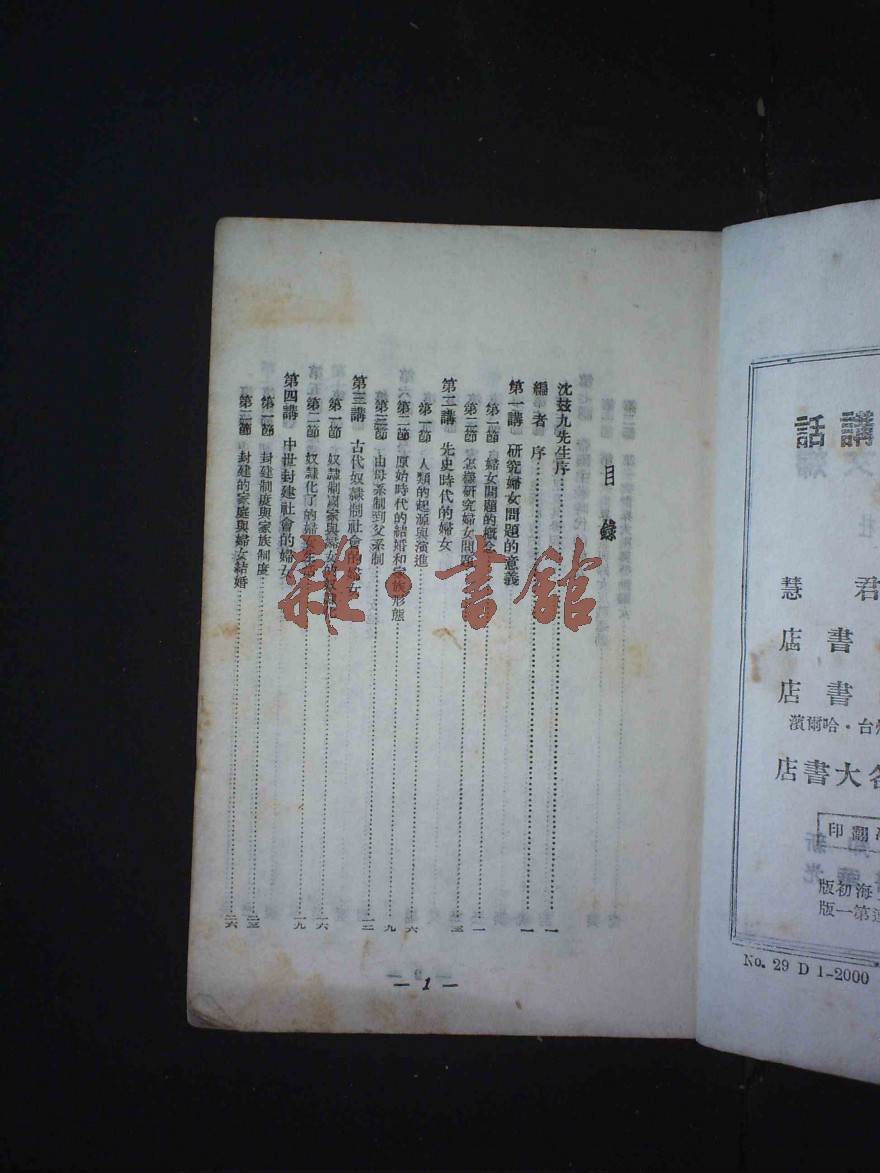 目錄
沈玆九先生序 一
編者序 一
第一講 研究婦女問題的意義
第一節 婦女問題的概念 一
第二節 怎樣研究婦女問題 三
第二講 先史時代的婦女
第一節 人類的起源與演進 六
第二節 原始時代的結婚和家族形態 九
第三節 由母系制到父系制 一三
第三講 古代奴隸制社會的婦女
第一節 奴隸制國家與婦女的奴 一六
第二節 奴隸化了的婦女生活 一九
第四講 中世封建社會的婦女
第一節 封建制度與家族制度 二三
第二節 封建的家庭與婦女結婚 二六
— 1 —
雜·書館
講話
君慧
書店
書店
台·哈爾濱
名大書店
翻印
海初版
第一版
No. 29 D 1-2000